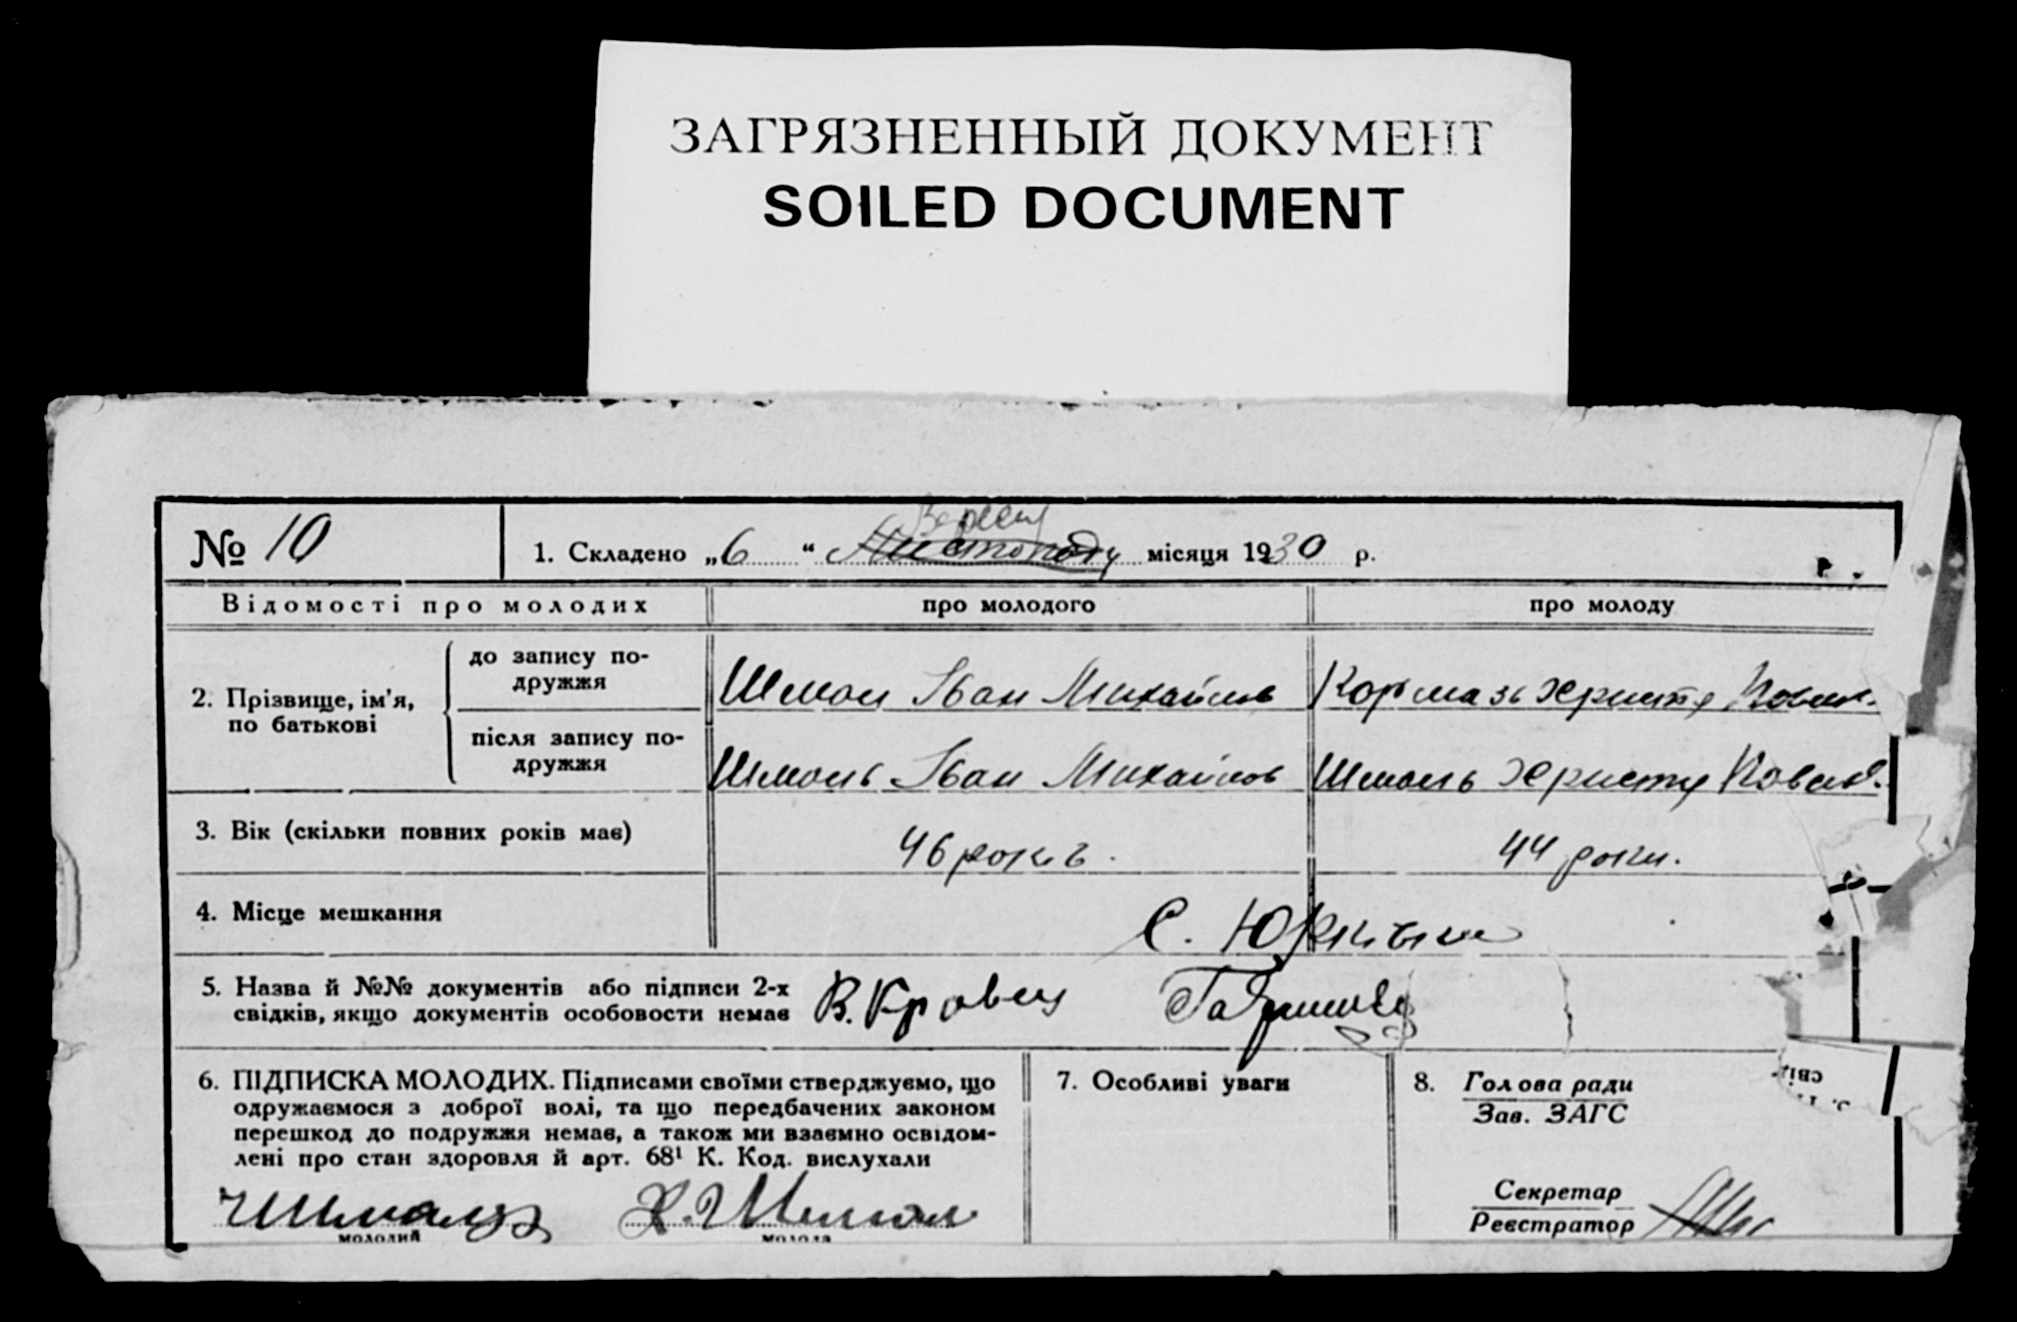 ЗАГРЯЗНЕННЫЙ ДОКУМЕНТ
SOILED DOCUMENT
№ 10
Вересня
1. Складено „ 6 “ Листопаду місяця 1930 р.
Відомості про молодих про молодого про молоду
2. Прізвище, ім'я, по батькові
до запису по-
дружжя
Шмоль Іван Михайлов
Христя
після запису по-
дружжя
Шмоль Іван Михайлов
Шмоль Христя
3. Вік (скільки повних років має) 46 років. 44 роки.
4. Місце мешкання С.
5. Назва й №№ документів або підписи 2-х
свідків, якщо документів особовости немає
В. Кровец
6. ПІДПИСКА МОЛОДИХ. Підписами своїми стверджуємо, що
одружаємося з доброї волі, та що передбачених законом
перешкод до подружжя немає, а також ми взаємно освідом-
лені про стан здоровля й арт. 68¹ К. Код. вислухали
молодий
Х. Шмоль
молода
7. Особливі уваги
8. Голова ради
Зав. ЗАГС
Секретар
Реєстратор
сві